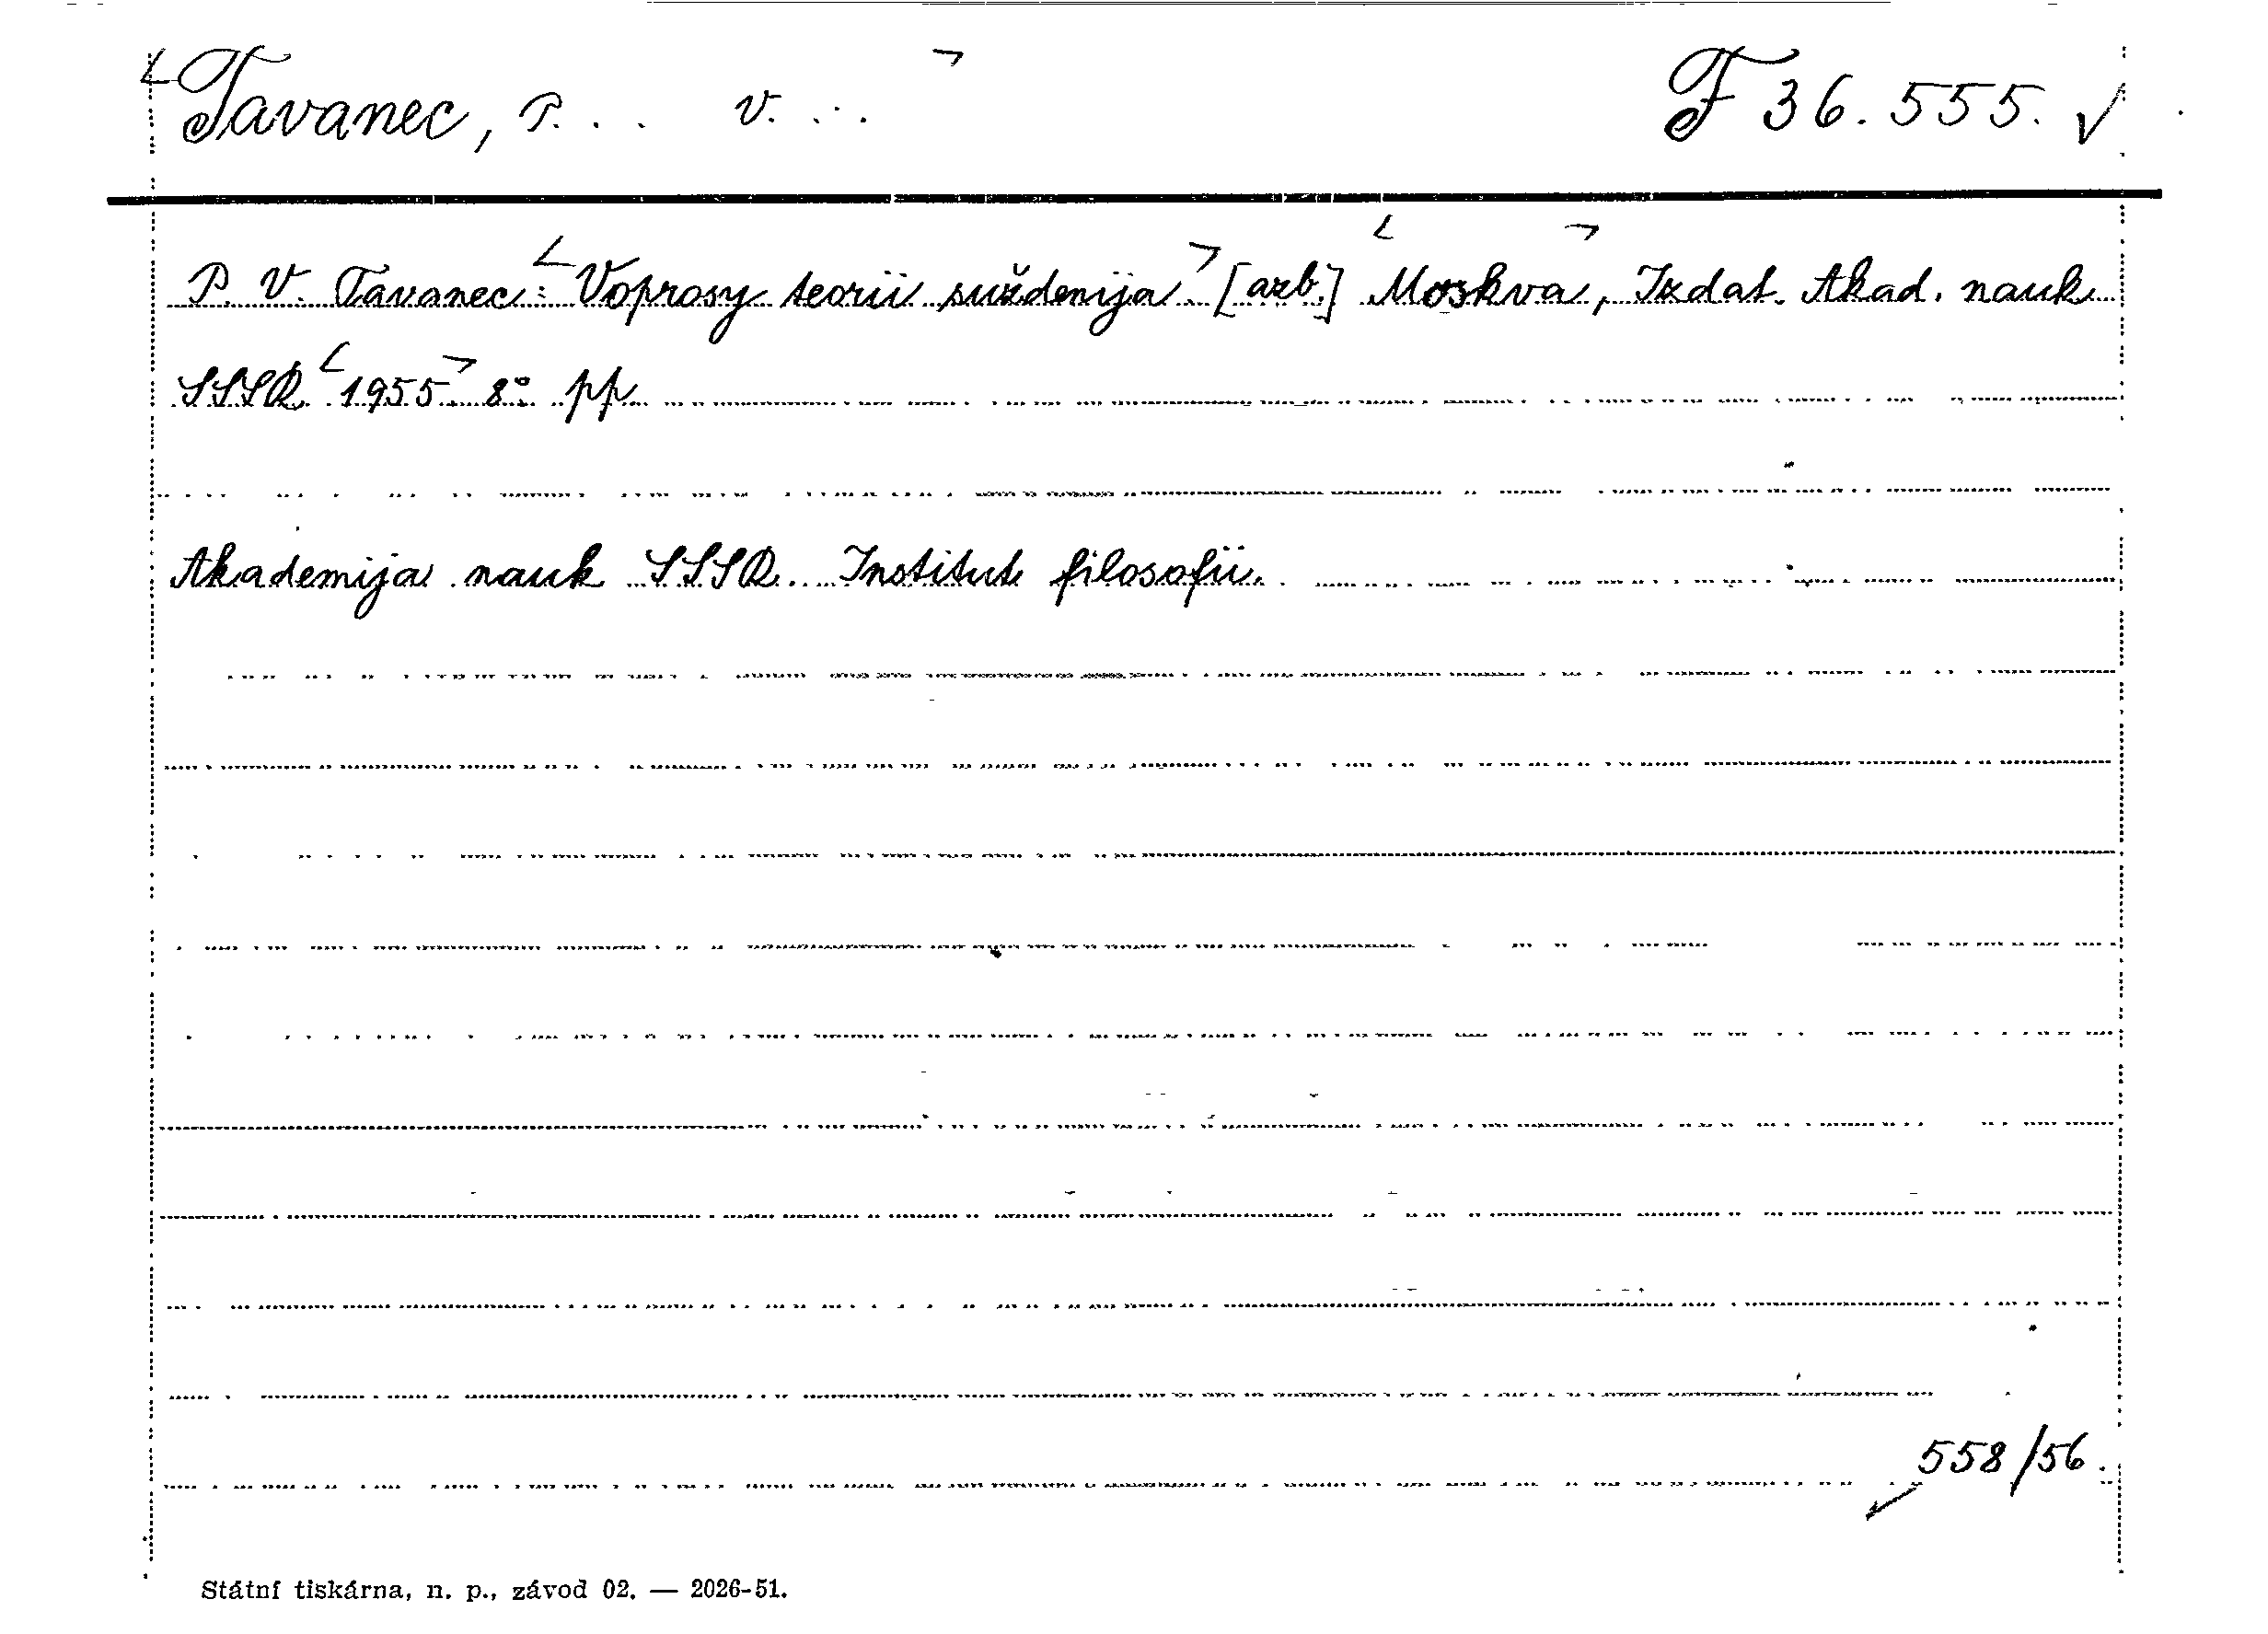 Tavanec, P. . . V. . . . F 36.555.
P. V. Tavanec: Voprosy teorii suždenija. [azb.] Moskva, Izdat. Akad. nauk
SSSR 1955. 8° pp
Akademija nauk SSSR. Institut filosofii.
558/56.
Státní tiskárna, n. p., závod 02. — 2026-51.